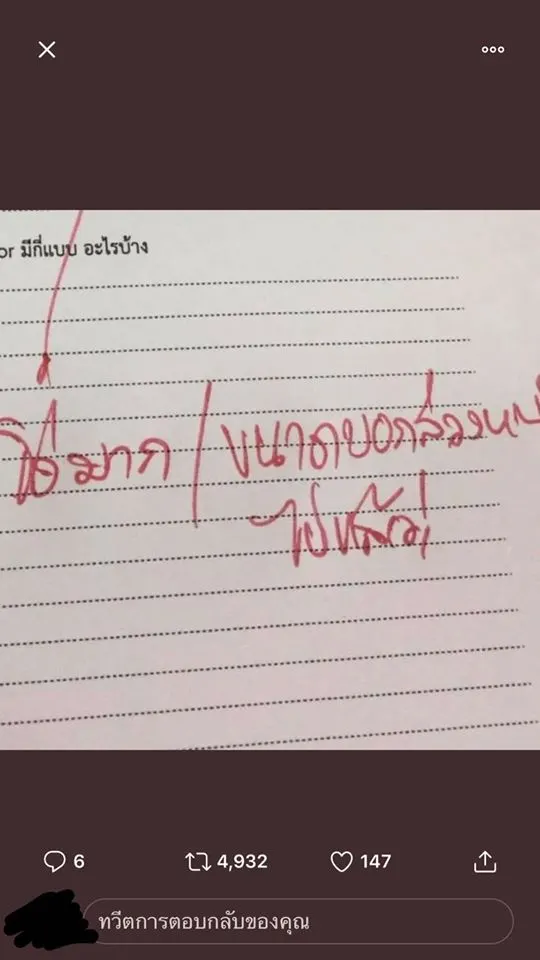 or มีกี่แบบ อะไรบ้าง
มาก / ขนาดบอกล่วงหน้า
6 4,932 147
ทวีตการตอบกลับของคุณ